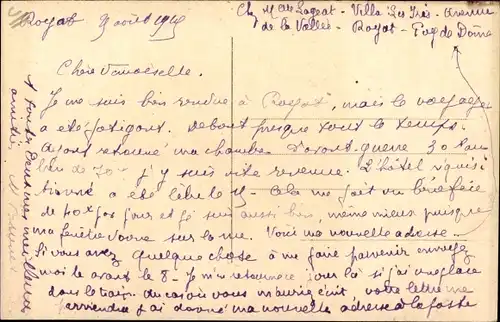 Royat 9 août 1945
Chez M. des Lageat - Villa les Iris - Avenue
de la Vallée - Royat - Puy de Dôme
Chère Demoiselle.
Je me suis bien rendue à Royat, mais le voyage
a été fatigant. Debout presque tout le temps.
Ayant retourné ma chambre d'avant-guerre 30 F au
lieu de 70 F j'y suis vite revenue. L'hôtel réquisi-
tionné a été libéré le 15 - Cela me fait un bénéfice
de 40 F par jour et je suis aussi bien, même mieux puisque
ma fenêtre donne sur la rue. Voici ma nouvelle adresse
Si vous avez quelque chose à me faire parvenir envoyez
moi le avant le 8 - Je m'en retournerai jour là si j'ai une place
dans le train. Au cas où vous m'auriez écrit votre lettre me
parviendra j'ai donné ma nouvelle adresse à la poste
A toutes deux mes meilleures
amitiés